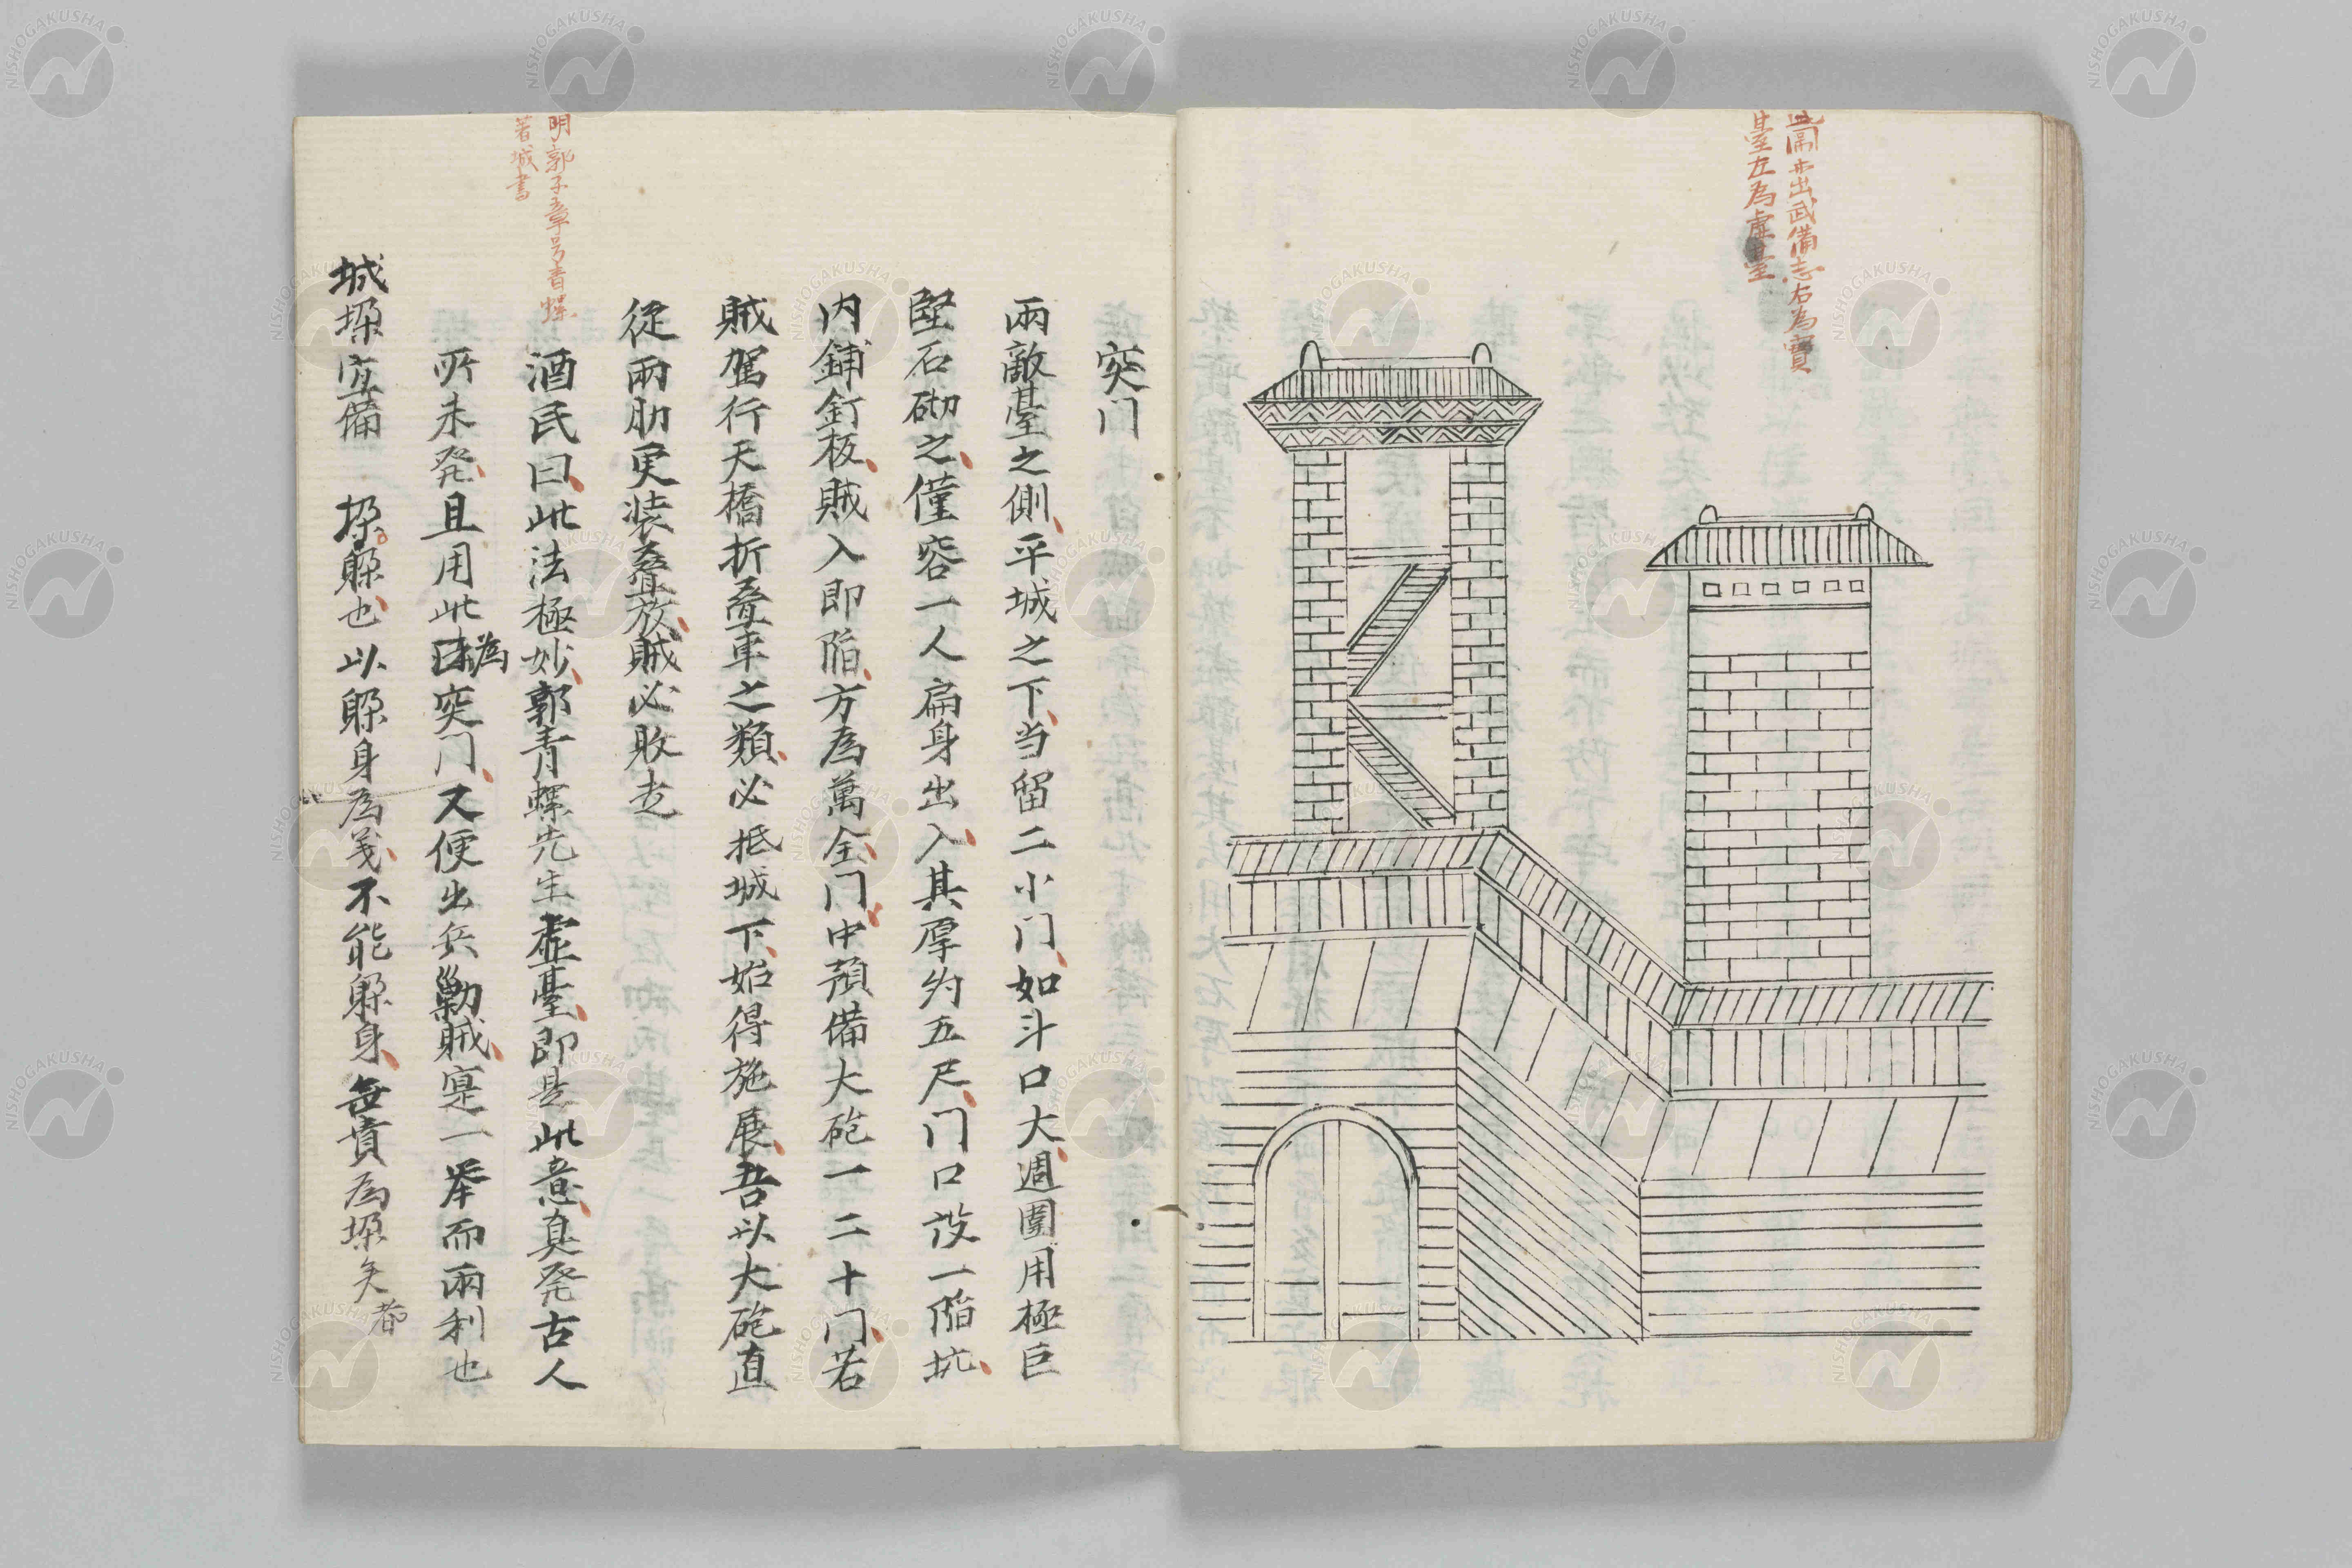 此圖亦出武備志右為實
臺左為虚臺
突门
兩敵臺之側平城之下当留二小门如斗口大週圍用極巨
堅石砌之僅容一人扁身出入其厚約五尺门口設一陷坑
内鋪釘板賊入即陷方為萬全门中預備大砲一二十门若
賊駕行天橋折疊車之類必抵城下始得施展吾以大砲直
從兩肋更装疊放賊必敗走
明郭子章号青螺
著城書
酒民曰此法極妙郭青螺先生虚臺即是此意真発古人
所未発且用此為突门又便出兵勦賊寔一举而兩利也
城垜宜備 垜躲也以躲身為義不能躲身無貴為垜矣
NISHOGAKUSHA